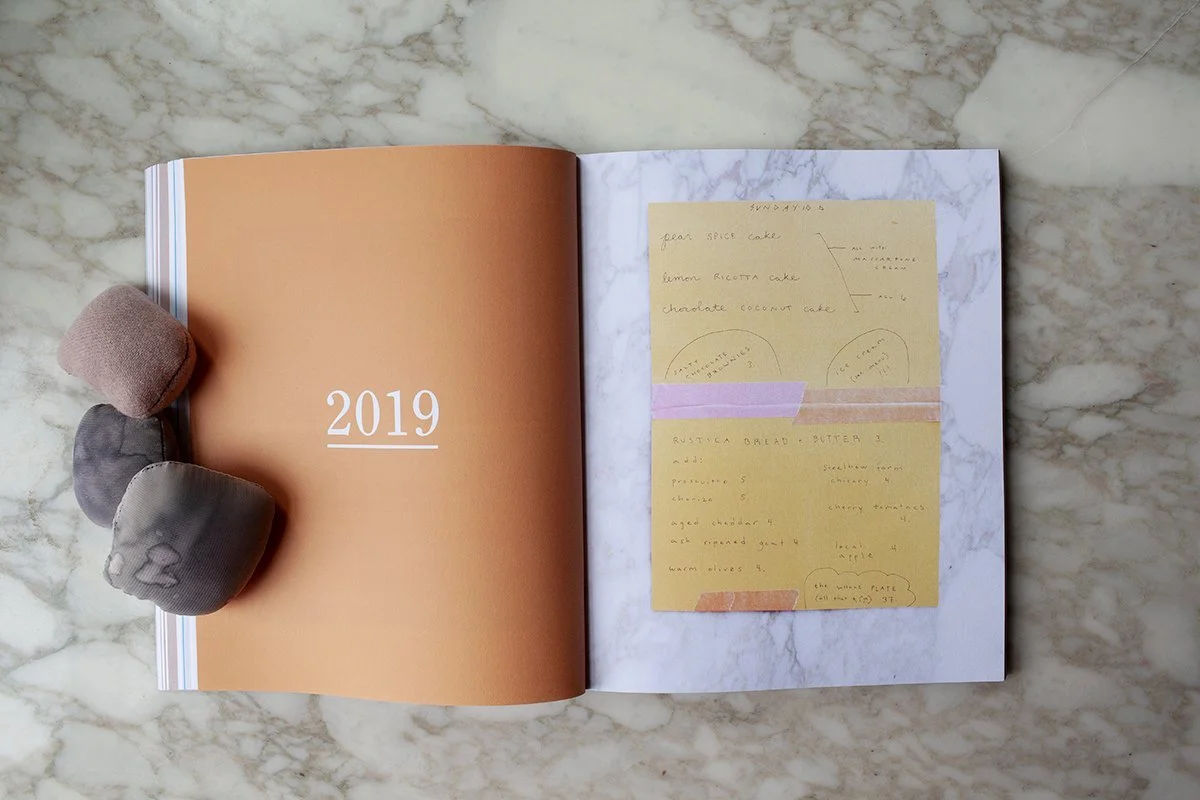 2019
SUNDAY 10 6
pear SPICE cake
ALL WITH
MASCARPONE
CREAM
lemon RICOTTA cake
ALL 6
chocolate COCONUT cake
SALTY
CHOCOLATE
BROWNIES
3
ICE CREAM
RUSTICA BREAD + BUTTER
add:
prosciutto 5
chorizo 5
aged cheddar 4
ash ripened goat 4
warm olives 4.
steelbow farm
chicory 4
cherry tomatoes
4.
local 4
apple
the whole PLATE
37